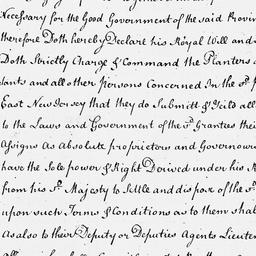 Necessary for the Good Government of the said Provin
therefore Doth hereby Declare his Royal Will and
Doth Strictly Charge & Command the Planters a
tants and all other Persons Concerned In the sd. P
East New Jersey that they do Submitt & Yeild all
to the Laws and Government of the sd. Grantees thei
Assigns As Absolute proprietors and Governour
have the Sole power & Right Derived under his M
from his sd. Majesty to Settle and dispose of the sd.
upon such Terms & Conditions as to them shal
As also to their Deputy or Deputies Agents Lieuten